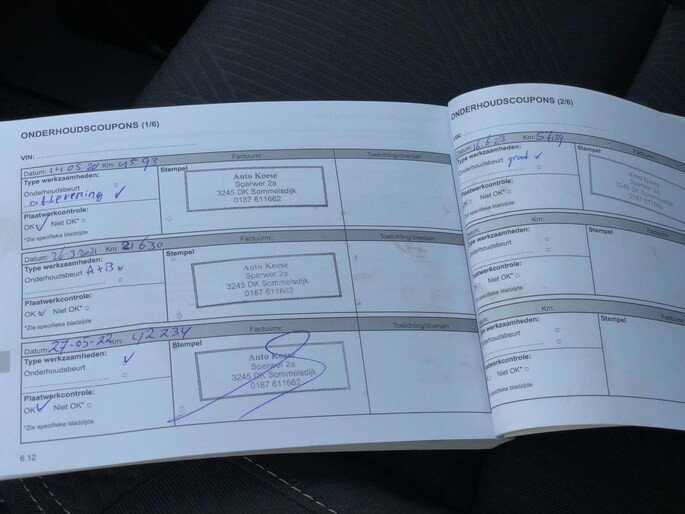 ONDERHOUDSCOUPONS (1/6)
VIN:
Datum: 14 05 20 Km: 4593 Factuurnr.: Toelichting/diversen
Type werkzaamheden: Stempel
Onderhoudsbeurt
aflevering ✓
Plaatwerkcontrole:
OK ✓ Niet OK*
*Zie specifieke bladzijde
Auto Koese
Sperwer 2a
3245 DK Sommelsdijk
0187 611662
Datum: 26-3-2021 Km: 21630 Factuurnr.: Toelichting/diversen
Type werkzaamheden: Stempel
Onderhoudsbeurt A+B
Plaatwerkcontrole:
OK ✓ Niet OK*
*Zie specifieke bladzijde
Auto Koese
Sperwer 2a
3245 DK Sommelsdijk
0187 611662
Datum: 27-05-22 Km: 42234 Factuurnr.: Toelichting/diversen
Type werkzaamheden: ✓ Stempel
Onderhoudsbeurt
Plaatwerkcontrole:
OK ✓ Niet OK*
*Zie specifieke bladzijde
Auto Koese
Sperwer 2a
3245 DK Sommelsdijk
0187 611662
6.12
ONDERHOUDSCOUPONS (2/6)
VIN:
Km:
Type werkzaamheden: Stempel
Onderhoudsbeurt groot ✓
Plaatwerkcontrole:
Niet OK*
specifieke bladzijde
Km:
werkzaamheden:
Onderhoudsbeurt
Plaatwerkcontrole:
Niet OK*
specifieke bladzijde
Km:
werkzaamheden: Stempel
Onderhoudsbeurt
Plaatwerkcontrole:
Niet OK*
specifieke bladzijde